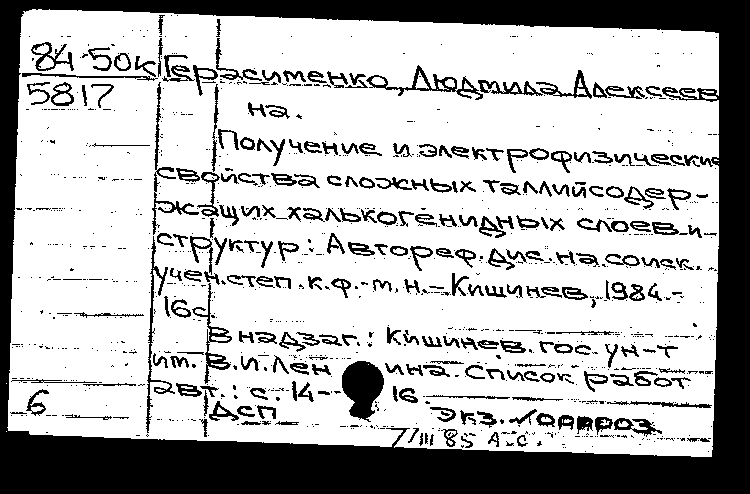 84-50к Герасименко, Людмила Алексеев
5817
на.
Получение и электрофизические
свойства сложных таллийсодер-
жащих халькогенидных слоев и
структур: Автореф. дис. на соиск.
учен. степ. к.ф.-м.н. – Кишинев, 1984.-
16с.
В надзаг.: Кишинев. гос. ун-т
им. В.И. Ленина. Список работ
авт.: с. 14-16.
6
ДСП
Экз.
7/III 85 А.С.